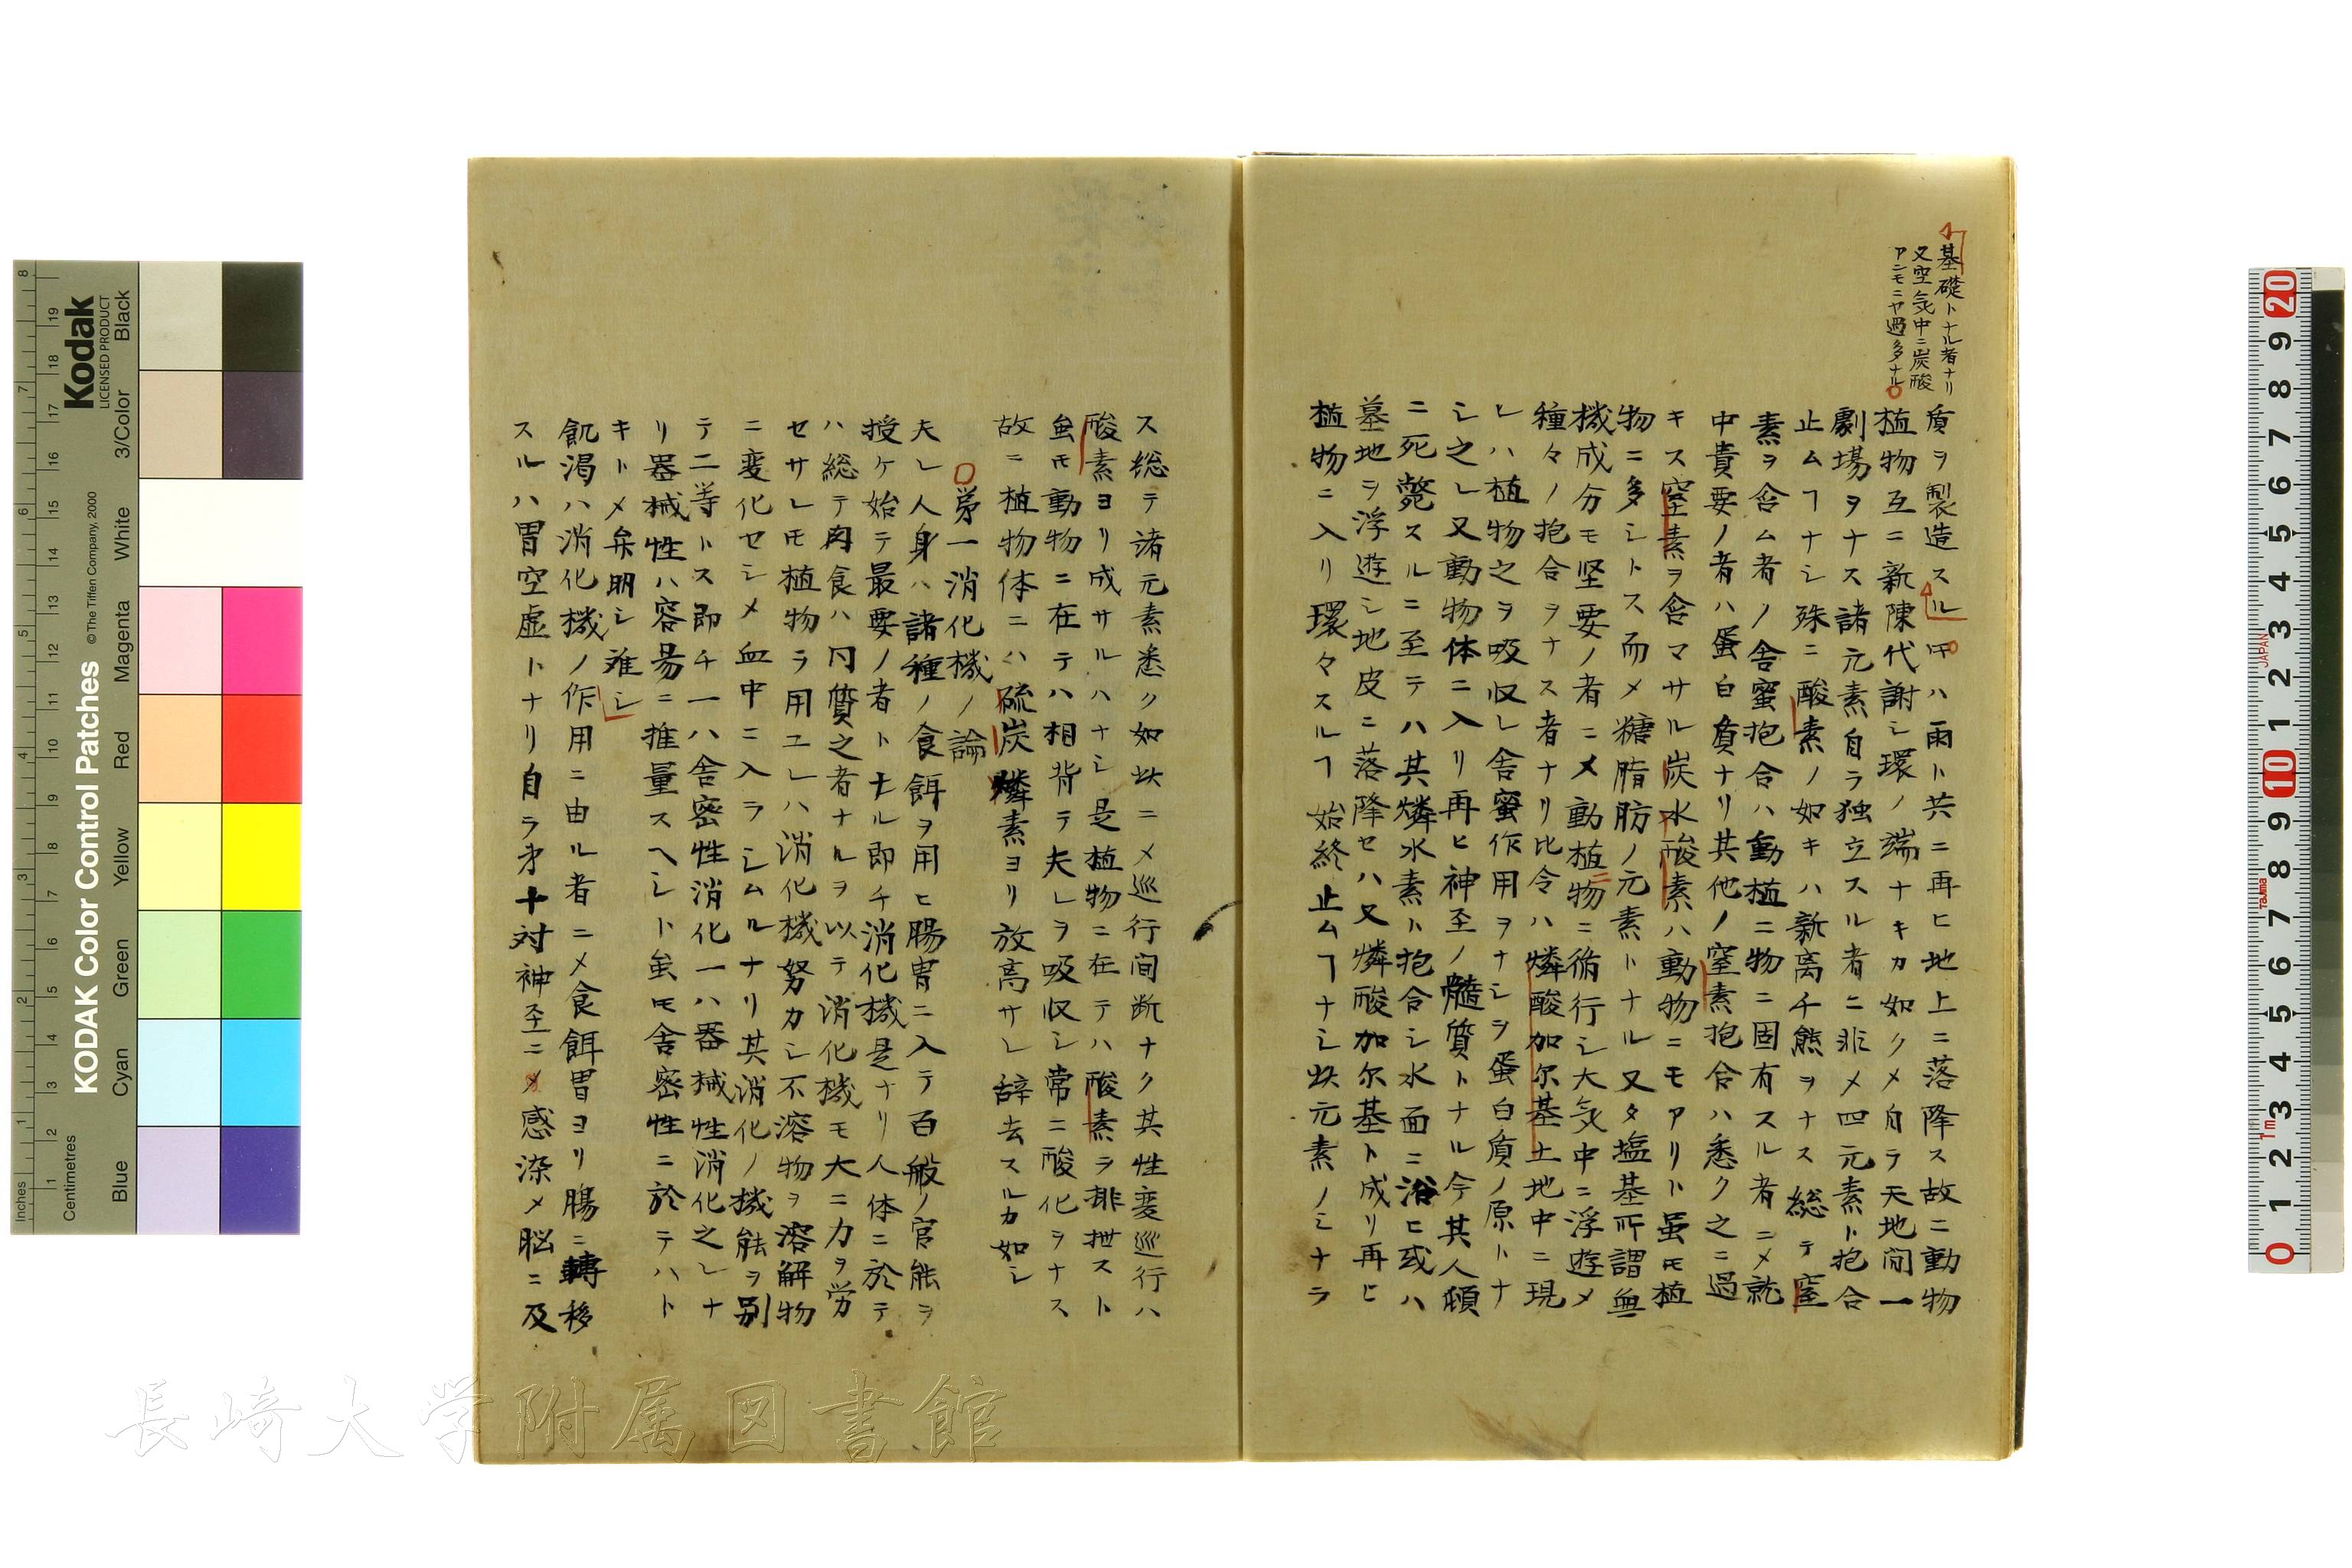 基礎トナル者ナリ
又空気中ニ炭酸
アンモニヤ過多ナル
質ヲ製造スル𪜈ハ雨ト共ニ再ヒ地上ニ落降ス故ニ動物
植物互ニ新陳代謝シ環ノ端ナキカ如クメ自ラ天地間一
劇場ヲナス諸元素自ラ独立スル者ニ非メ四元素ト抱合
止ムヿナシ殊ニ酸素ノ如キハ新离千熊ヲナス総テ窒
素ヲ含ム者ノ舎蜜抱合ハ動植ニ物ニ固有スル者ニメ就
中貴要ノ者ハ蛋白質ナリ其他ノ窒素抱合ハ悉ク之ニ過
キス窒素ヲ含マサル炭水酸素ハ動物ニモアリト虽𪜈植
物ニ多シトス而メ糖脂肪ノ元素トナル又タ塩基所謂無
機成分モ堅要ノ者ニメ動植物ニ循行シ大気中ニ浮遊メ
種々ノ抱合ヲナス者ナリ比令ハ燐酸加尔基土地中ニ現
レハ植物之ヲ吸収レ舎蜜作用ヲナシヲ蛋白質ノ原トナ
シ之レ又動物体ニ入リ再ヒ神至ノ髓質トナル今其人頓
ニ死斃スルニ至テハ其燐水素ト抱合シ水面ニ浴ヒ或ハ
墓地ヲ浮遊シ地皮ニ落降セハ又燐酸加尔基ト成リ再ヒ
植物ニ入リ環々スルヿ始終止ムヿナシ𣥂元素ノミナラ
ス総テ諸元素悉ク如𣥂ニメ巡行间断ナク其性変巡行ハ
酸素ヨリ成サルハナシ是植物ニ在テハ酸素ヲ排泄スト
虽𪜈動物ニ在テハ相背テ夫レヲ吸収シ常ニ酸化ヲナス
故ニ植物体ニハ硫炭燐素ヨリ放高サレ辞去スルカ如シ
第一消化機ノ論
夫レ人身ハ諸種ノ食餌ヲ用ヒ腸胃ニ入テ百般ノ官能ヲ
授ケ始テ最要ノ者トナル即チ消化機是ナリ人体ニ於テ
ハ総テ肉食ハ同質之者ナルヲ以テ消化機モ大ニ力ヲ労
セサレ𪜈植物ヲ用ユレハ消化機努カシ不溶物ヲ溶解物
ニ変化セシメ血中ニ入ラシムルナリ其消化ノ機能ヲ別
テ二等トス即チ一ハ舎密性消化一ハ器械性消化之レナ
リ器械性ハ容易ニ推量スヘシト虽𪜈舎密性ニ於テハト
キトメ弁明シ难シ
飢渇ハ消化機ノ作用ニ由ル者ニメ食餌胃ヨリ腸ニ轉移
スルハ胃空虚トナリ自ラ才十対神至ニメ感染メ脳ニ及
長崎大学附属図書館
KODAK Color Control Patches
© The Tiffen Company, 2000
Kodak
LICENSED PRODUCT
Inches
Centimetres
Blue
Cyan
Green
Yellow
Red
Magenta
White
3/Color
Black
JAPAN
Tajima